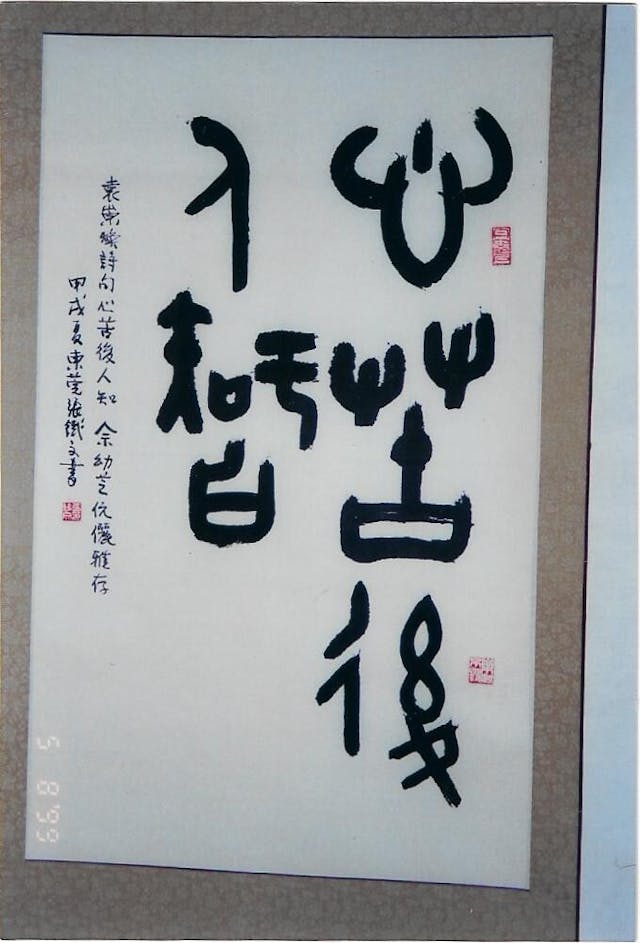 心苦後
人智
袁崇煥詩句 心苦後人知 佘幼芝伉儷雅存
甲戌夏東莞張鐵文書
5 8 '99